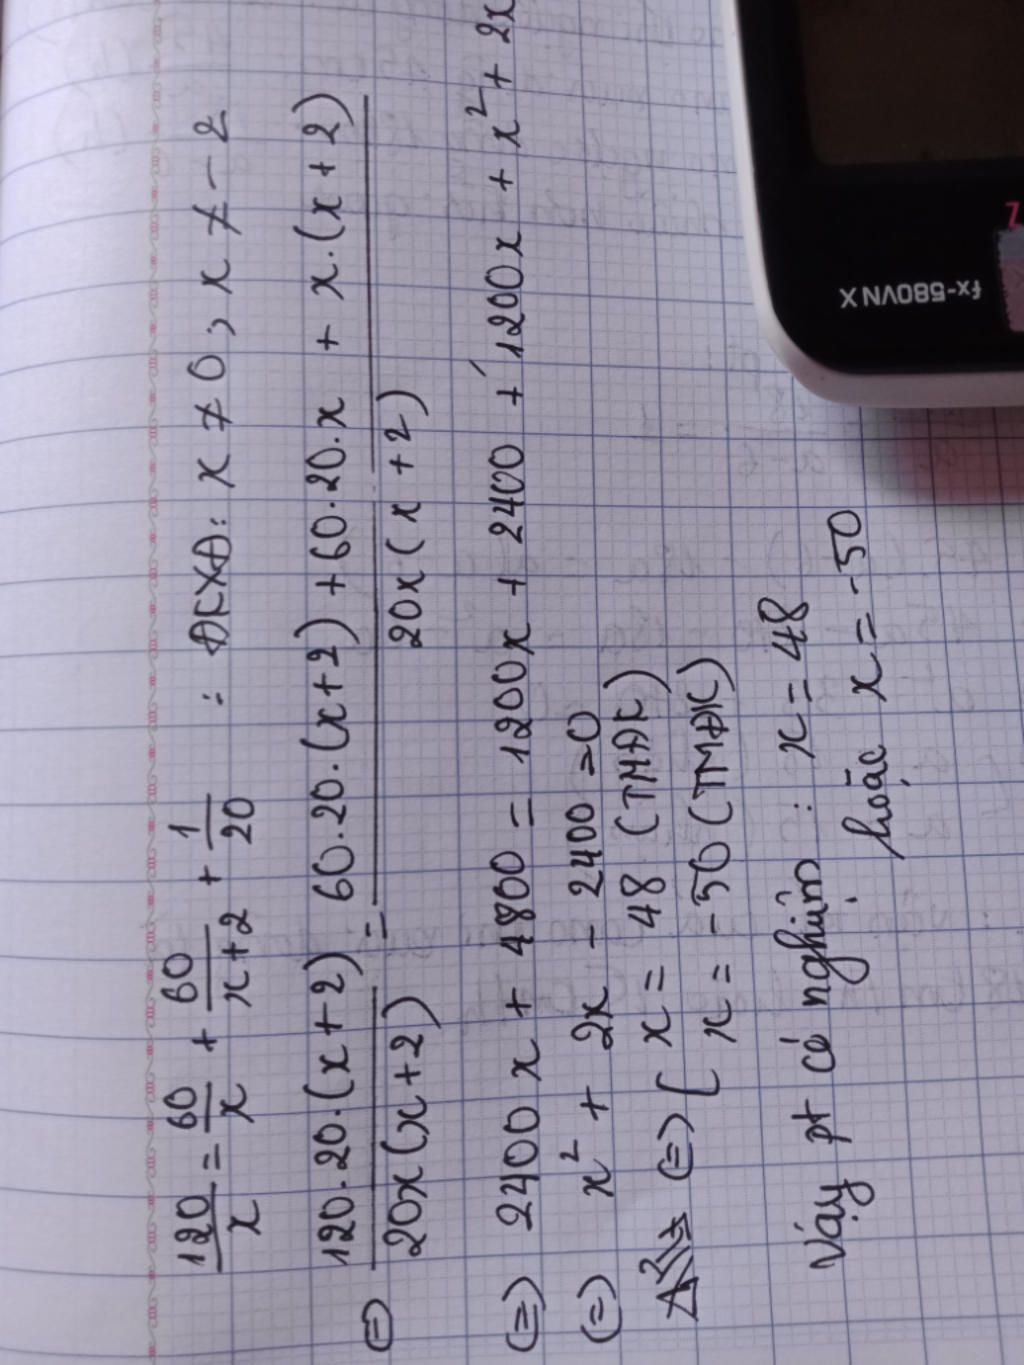 120/x = 60/x + 60/x+2 + 1/20 : ĐKXĐ: x ≠ 0 ; x ≠ - 2
(=) 120.20.(x+2)/20x(x+2) = 60.20.(x+2) + 60.20.x + x.(x+2)/20x(x+2)
(=) 2400x + 4800 = 1200x + 2400 + 1200x + x² + 2x
(=) x² + 2x - 2400 = 0
(=) [ x = 48 (TMĐK)
x = -50 (TMĐK)
Vậy pt có nghiệm : x = 48
hoặc x = -50
fx-580VN X
7